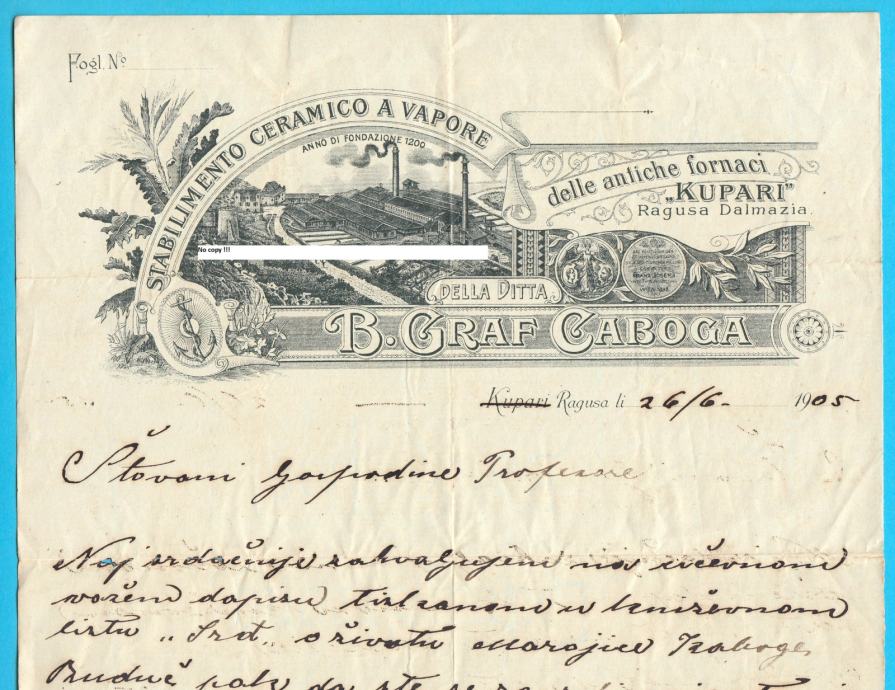 Fogl. Nº
STABILIMENTO CERAMICO A VAPORE
ANNO DI FONDAZIONE 1200
delle antiche fornaci
„KUPARI"
Ragusa Dalmazia.
No copy !!!
DELLA DITTA
B. GRAF CABOGA
Kupari Ragusa li 26/6. 1905
Štovani Gospodine Profesore
Naj srdačnije zahvaljujem na učevnom
važem dopisu tiskanom u književnom
listu „Srđ" o životu Marojice Kaboge,
Buduć pak da ste se